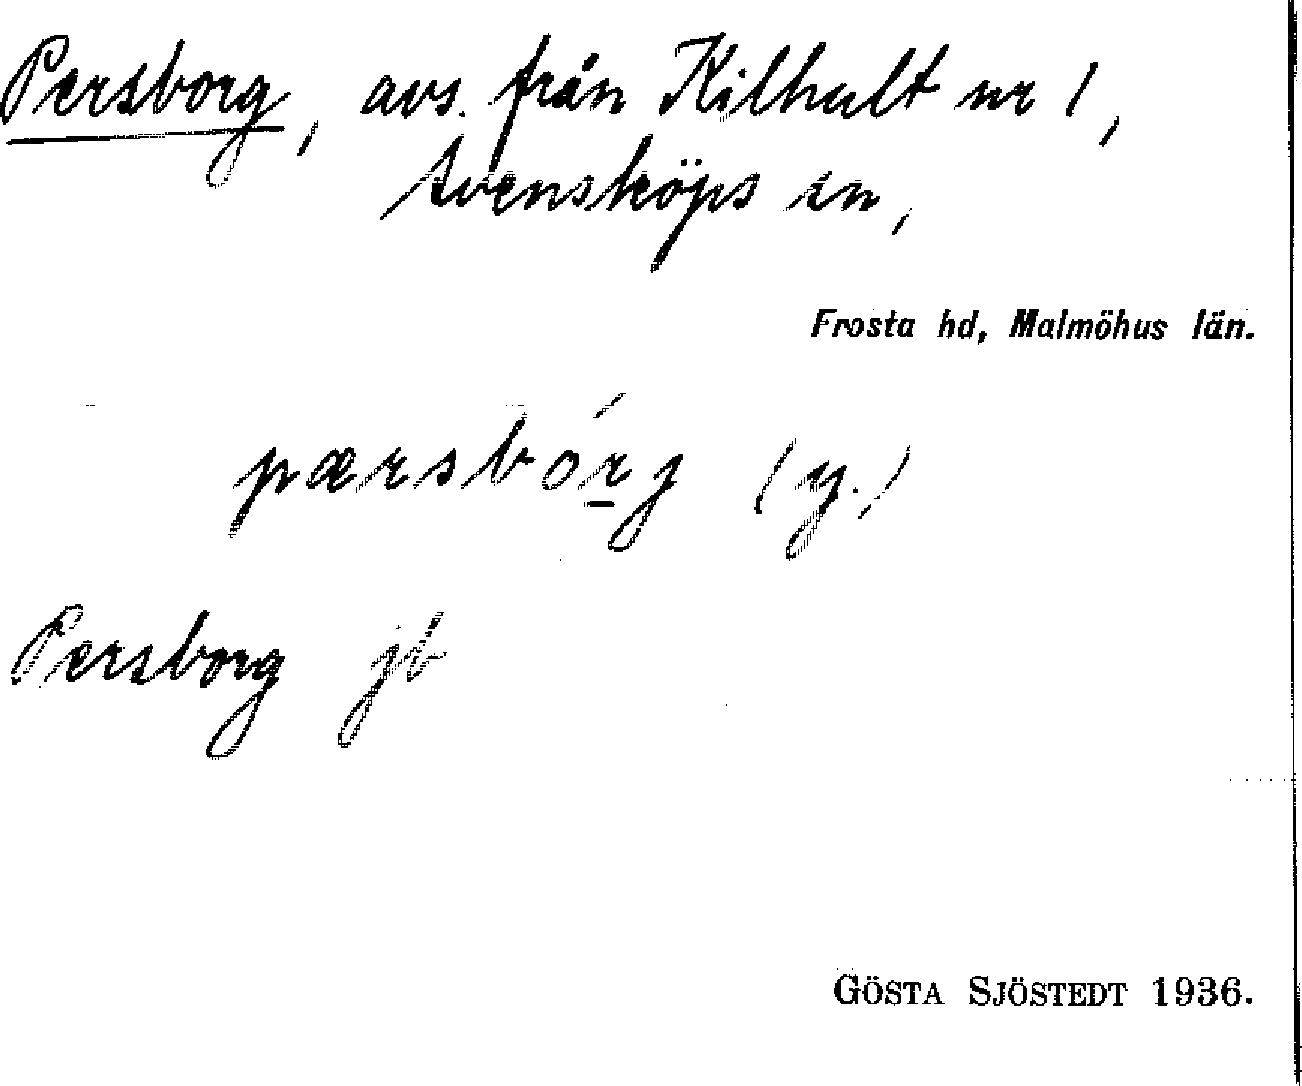 Persborg, avs. från Kilhult nr 1,
Svensköps sn,
Frosta hd, Malmöhus län.
pærsbórj (y.)
Persborg jb
GÖSTA SJÖSTEDT 1936.